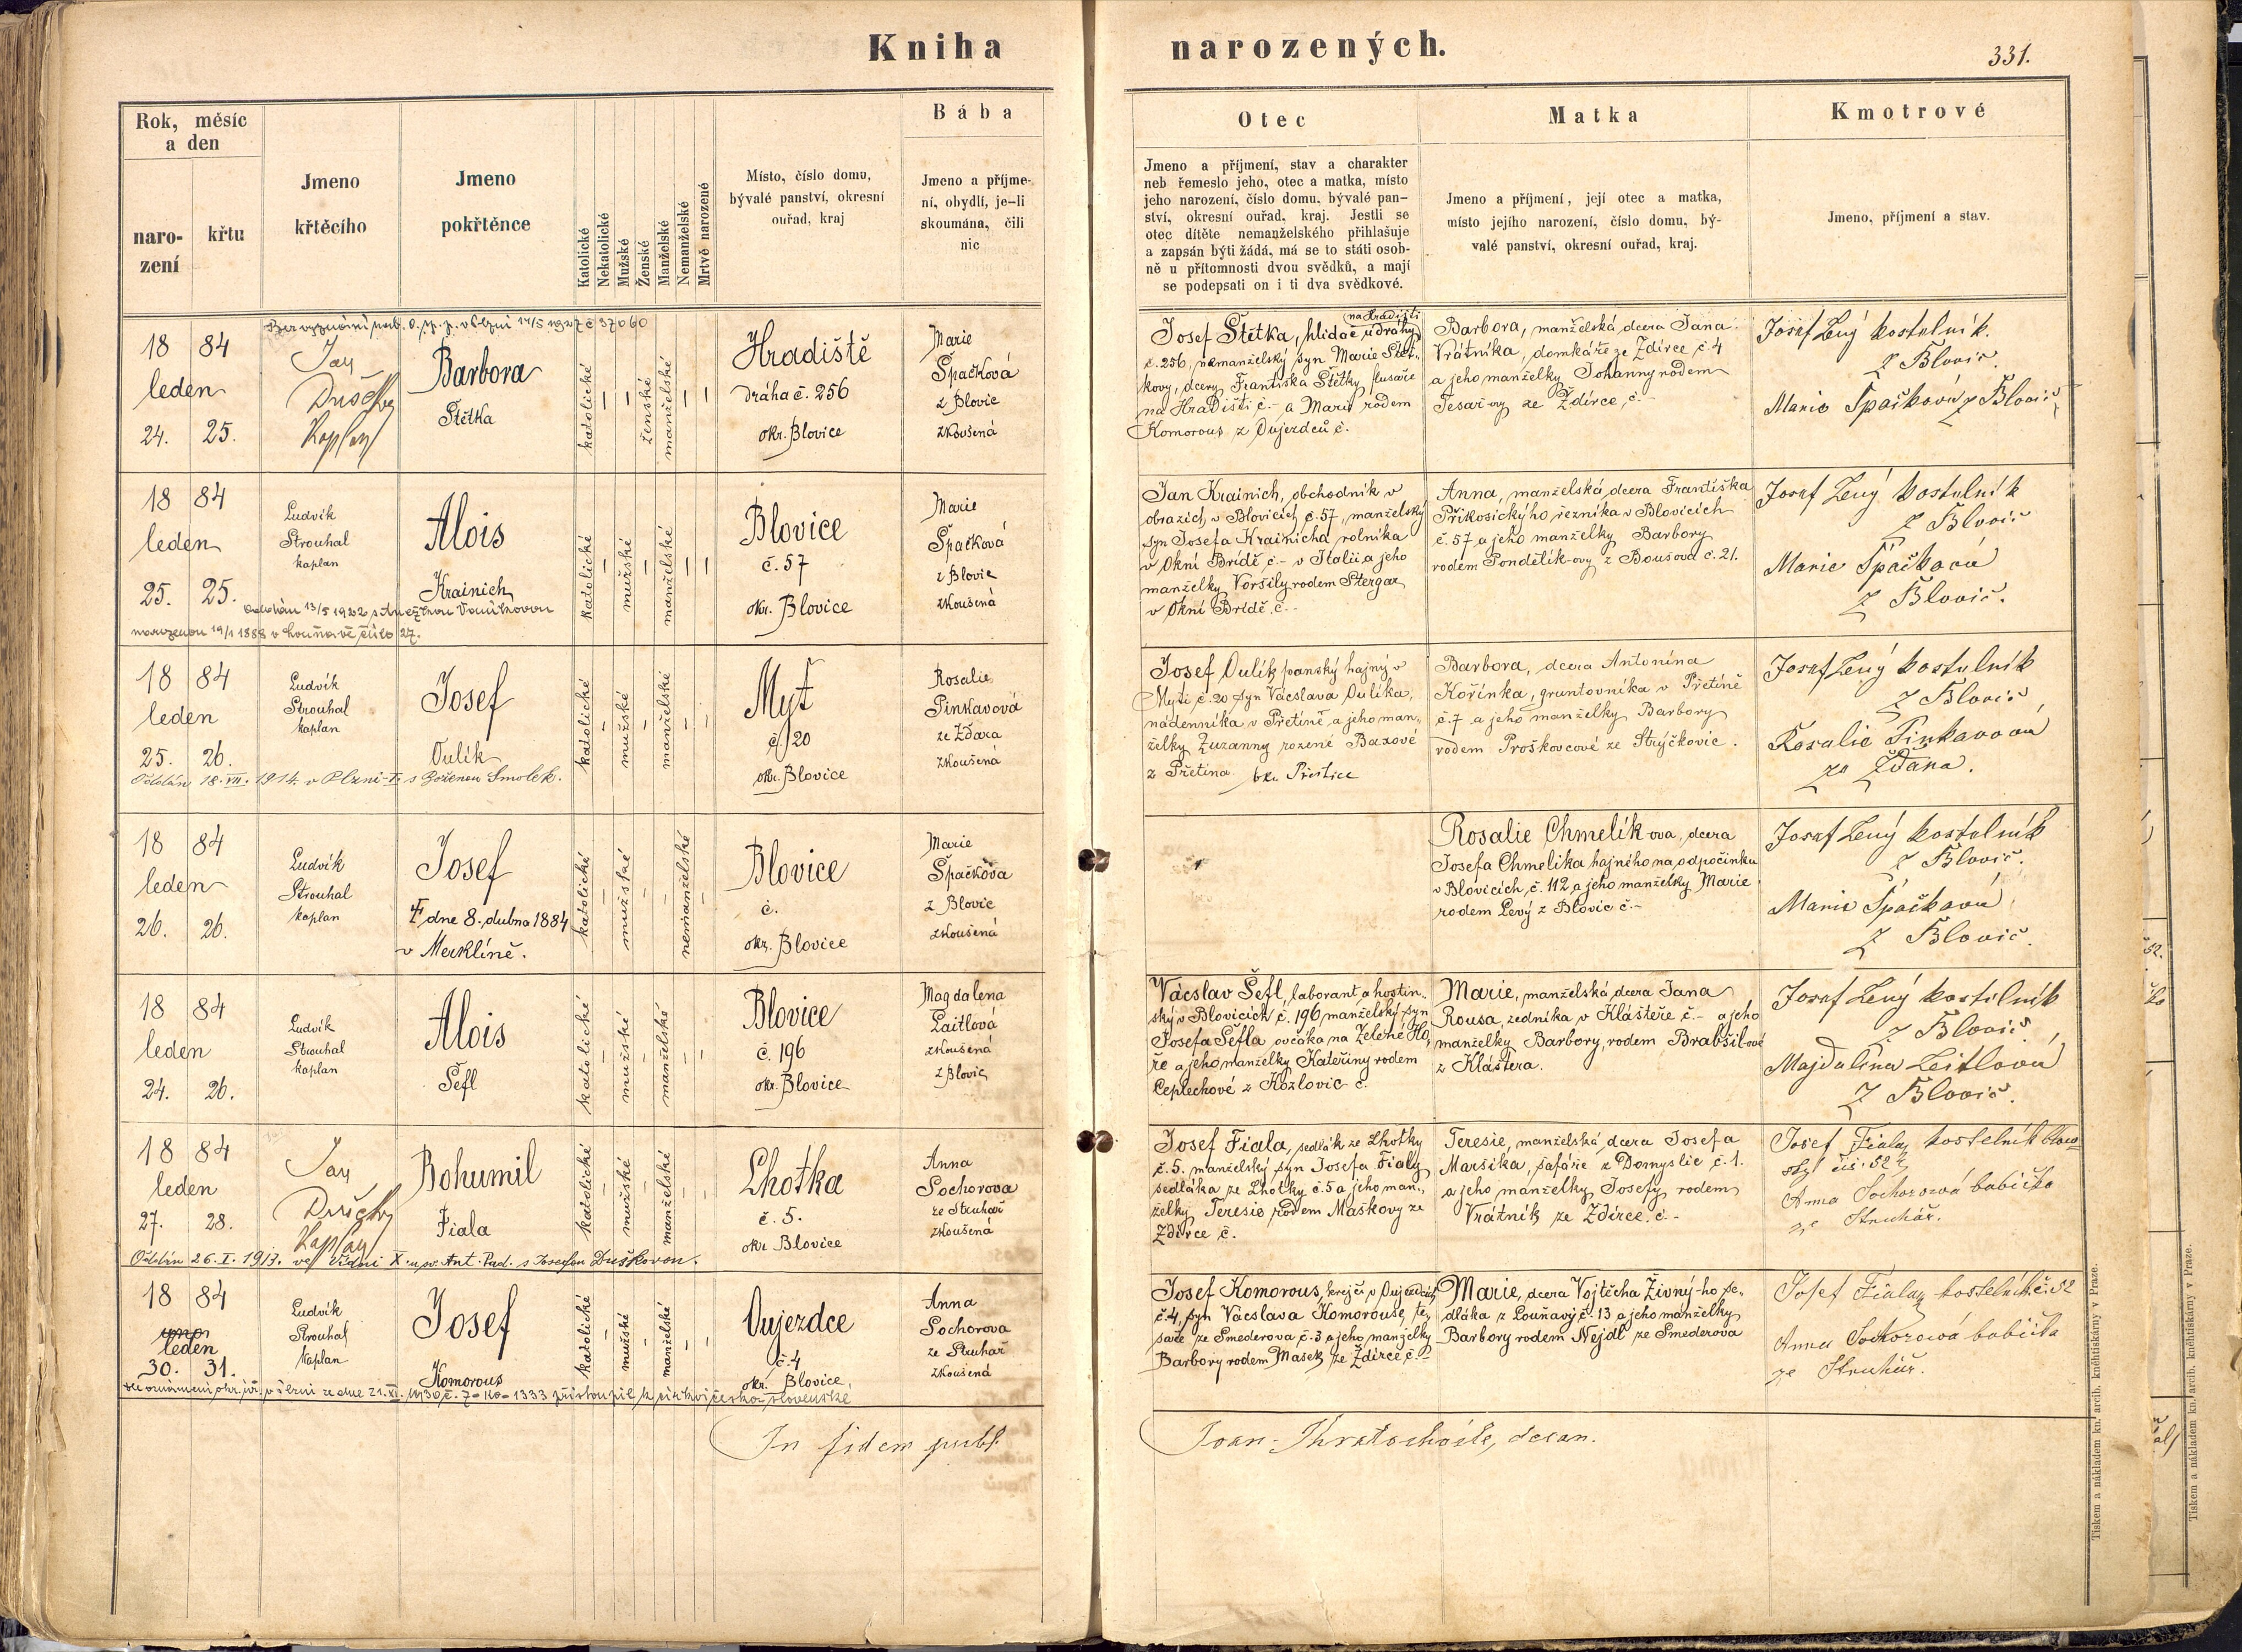 Kniha narozených.
331.
Rok, měsíc
a den
naro-
zení
křtu
Jmeno
křtěcího
Jmeno
pokřtěnce
Katolické
Nekatolické
Mužské
Ženské
Manželské
Nemanželské
Mrtvě narozené
Místo, číslo domu,
bývalé panství, okresní
ouřad, kraj
Bába
Jmeno a příjme-
ní, obydlí, je-li
skoumána, čili
nic
Otec
Jmeno a příjmení, stav a charakter
neb řemeslo jeho, otec a matka, místo
jeho narození, číslo domu, bývalé pan-
ství, okresní ouřad, kraj. Jestli se
otec dítěte nemanželského přihlašuje
a zapsán býti žádá, má se to státi osob-
ně u přítomnosti dvou svědků, a mají
se podepsati on i ti dva svědkové.
Matka
Jmeno a příjmení, její otec a matka,
místo jejího narození, číslo domu, bý-
valé panství, okresní ouřad, kraj.
Kmotrové
Jmeno, příjmení a stav.
18 84
leden
24. 25.
Jan
Kaplan
Barbora
Štětka
katolické
ženské
manželské
Hradiště
dráha č. 256
okr. Blovice
Marie
Špačková
z Blovic
zkoušená
na Hradišti
Josef Štětka, hlídač u dráhy
č. 256, nemanželský syn Marie Štět-
kovy, dcery Františka Štětky
na Hradišti č.- a Marie rodem
Komorous z Oujezdců č.
Barbora, manželská dcera Jana
Vrátníka, domkáře ze Zdírce č. 4
a jeho manželky Johanny rodem
Tesař-ovy ze Ždírce, č.-
Josef Lený kostelník
z Blovic.
Marie Špačková z Blovic
18 84
leden
25. 25.
Ludvík
Strouhal
kaplan
Alois
Krainich
narozenou 19/1 1888 v Louňavě číslo 27.
katolické
mužské
manželské
Blovice
č. 57
okr. Blovice
Marie
Špačková
z Blovic
zkoušená
Jan Krainich, obchodník v
obrazích v Blovicích č. 57, manželský
syn Josefa Krainicha rolníka
v Okní Brídě č.- v Italii a jeho
manželky Voršily rodem Stergar
v Okní Brídě č.-
Anna, manželská dcera Františka
Přikosickýho řezníka v Blovicích
č. 57 a jeho manželky Barbory
rodem Pondělík-ovy z Bousova č. 21.
Josef Lený kostelník
z Blovic
Marie Špačková
z Blovic.
18 84
leden
25. 26.
Ludvík
Strouhal
kaplan
Josef
Oulík
Oddán 18. VII. 1914. v Plzni-I. s Boženou Smolek.
katolické
mužské
manželské
Myť
č. 20
okr. Blovice
Rosalie
Pinkavová
ze Žďára
zkoušená
Josef Oulík, panský hajný v
Myti č. 20 syn Vácslava Oulíka,
nádenníka v Přetíně a jeho man-
želky Zuzanny rozené Baxové
z Přetína okr. Přeštice
Barbora, dcera Antonína
Kořínka, gruntovníka v Přetíně
č. 7 a jeho manželky Barbory
rodem Proškovcové ze Strýčkovic.
Josef Lený kostelník
z Blovic
Rosalie Pinkavová
ze Žďára.
18 84
leden
26. 26.
Ludvík
Strouhal
kaplan
Josef
† dne 8. dubna 1884
v Merklíně.
katolické
mužské
nemanželské
Blovice
č.
okr. Blovice
Marie
Špačkova
z Blovic
zkoušená
Rosalie Chmelík ova, dcera
Josefa Chmelíka hajného na odpočinku
v Blovicích č. 112 a jeho manželky Marie
rodem Levý z Blovic č.-
Josef Lený kostelník
z Blovic.
Marie Špačková
z Blovic.
18 84
leden
24. 26.
Ludvík
Strouhal
kaplan
Alois
Šefl
katolické
mužské
manželské
Blovice
č. 196
okr. Blovice
Magdalena
Laitlová
zkoušená
z Blovic
Vácslav Šefl, laborant a hostin-
ský v Blovicích č. 196 manželský syn
Josefa Šefla ovčáka na Zelené Ho-
ře a jeho manželky Kateřiny rodem
Ceplechové z Kozlovic č.
Marie, manželská dcera Jana
Rousa, zedníka v Klášteře č.- a jeho
manželky Barbory, rodem Brabšilové
z Kláštera.
Josef Lený kostelník
z Blovic
Majdalína Leitlová
z Blovic.
18 84
leden
27. 28.
Jan
Kaplan
Bohumil
Fiala
Oddán 26. I. 1913. ve Vídni X. u sv. Ant. Pad. s Josefou Duškovou.
katolické
mužské
manželské
Lhotka
č. 5.
okr Blovice
Anna
Sochorova
ze Struhař
zkoušená
Josef Fiala, sedlák ze Lhotky
č. 5. manželský syn Josefa Fialy
sedláka ze Lhotky č. 5 a jeho man-
želky Teresie rodem Maškovy ze
Zdírce č.
Teresie, manželská dcera Josefa
Maršíka, šafáře z Domyslic č. 1.
a jeho manželky Josefy rodem
Vrátník ze Zdírce. č.-
Josef Fiala kostelník
Anna Sochorová babička
ze Struhař.
18 84
leden
30. 31.
Ludvík
Strouhal
kaplan
Josef
Komorous
katolické
mužské
manželské
Oujezdce
č. 4
okr. Blovice
Anna
Sochorova
ze Struhař
zkoušená
Josef Komorous, krejčí v Oujezdcích
č. 4, syn Vácslava Komorouse, te-
saře ze Smederova č. 3 a jeho manželky
Barbory rodem Mašek ze Ždírce, č.-
Marie, dcera Vojtěcha Živný-ho se-
dláka z Louňavy č. 13 a jeho manželky
Barbory rodem Nejdl ze Smederova
Josef Fiala kostelník č. 52
Anna Sochorová babička
ze Struhař.
In fidem publ.
decan.
Tiskem a nákladem kn. arcib. kněhtiskárny v Praze.
Tiskem a nákladem kn. arcib. kněhtiskárny v Praze.